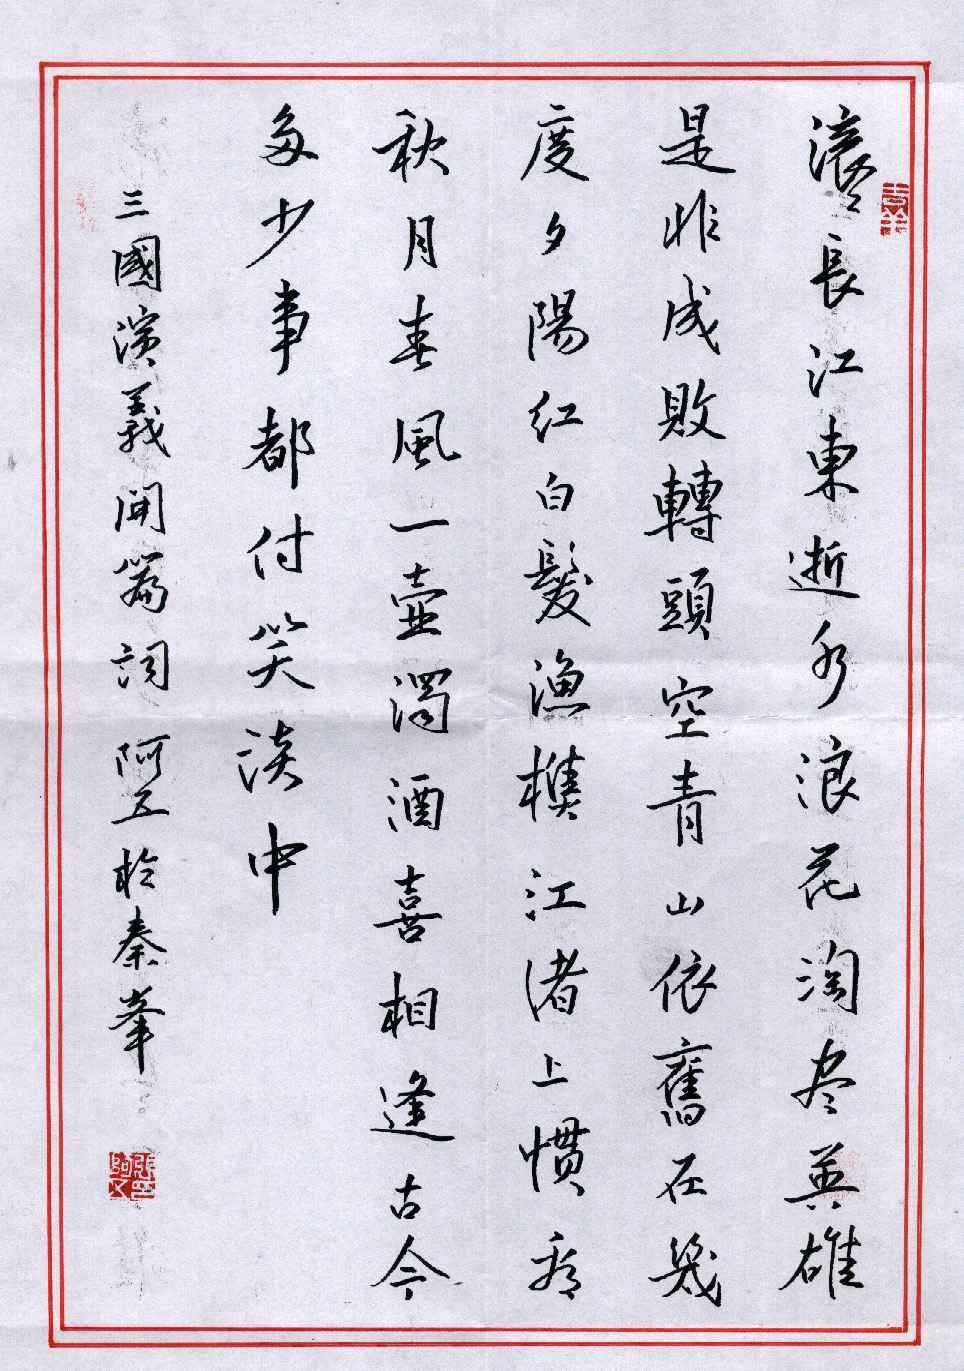 吉羊
滚々長江東逝水浪花淘尽英雄
是非成敗轉頭空青山依舊在幾
度夕陽紅白髮漁樵江渚上慣看
秋月春風一壺濁酒喜相逢古今
多少事都付笑談中
三國演義開篇詞 阿五於秦峯